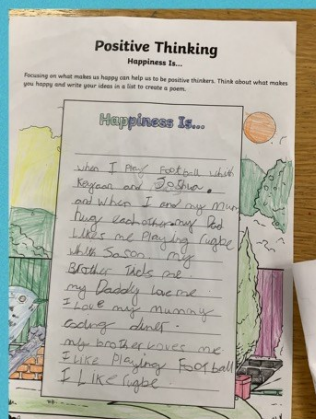 Positive Thinking
Happiness Is...
Focusing on what makes us happy can help us to be positive thinkers. Think about what makes
you happy and write your ideas in a list to create a poem.
Happiness Is...
when I Play Football whith
and Joshua.
and when I and my Mum
hug each other my Dad
likes me Playing rugbe
whith my
Brother me
my Daddy love me
I Love my mummy
diner.
my brother loves me
I Like Playing Football
I Like rugbe